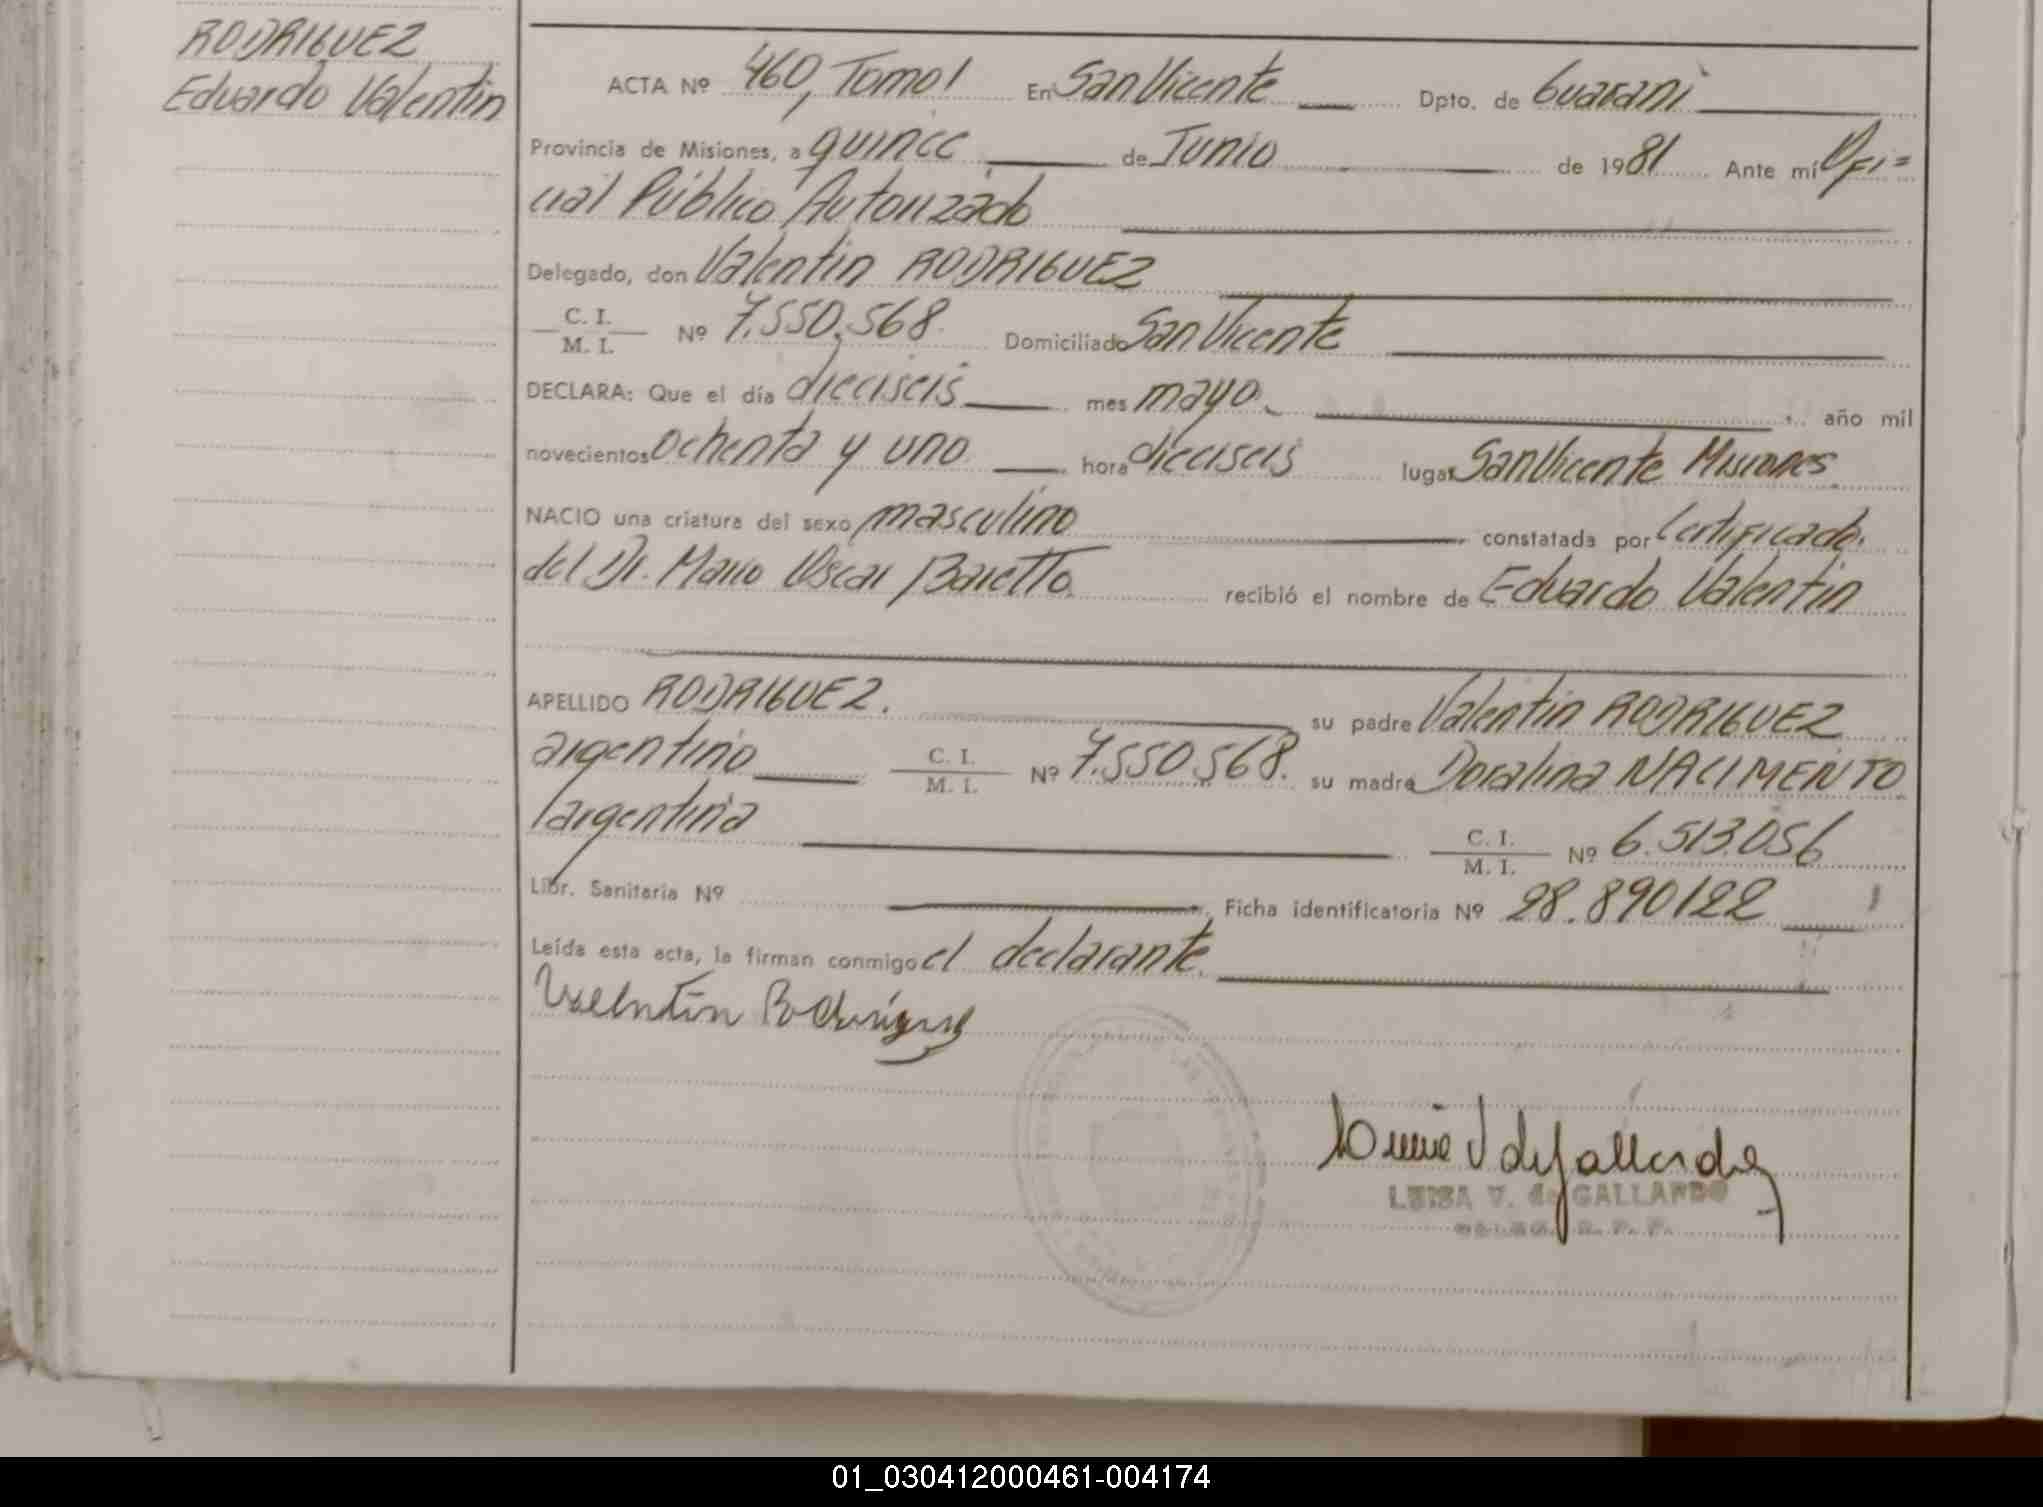 RODRIGUEZ
Eduardo Valentin
ACTA Nº 460, Tomo I En San Vicente Dpto. de Guarani
Provincia de Misiones, a quince de Junio de 1981 Ante mí Ofi=
cial Público Autorizado
Delegado, don Valentin RODRIGUEZ
C. I.
M. I. Nº 7.550.568 Domiciliado San Vicente
DECLARA: Que el día dieciseis mes mayo año mil
novecientos ochenta y uno hora dieciseis lugar San Vicente Misiones
NACIO una criatura del sexo masculino constatada por Certificado
del Dr. Mario Oscar Baretto recibió el nombre de Eduardo Valentin
APELLIDO RODRIGUEZ. su padre Valentin RODRIGUEZ
argentino C. I.
M. I. Nº 7.550.568. su madre Doralina NACIMENTO
argentina C. I.
M. I. Nº 6.513.056
Libr. Sanitaria Nº Ficha identificatoria Nº 28.890122
Leída esta acta, la firman conmigo el declarante.
Valentin Rodriguez
LUISA V. de GALLARDO
01_030412000461-004174